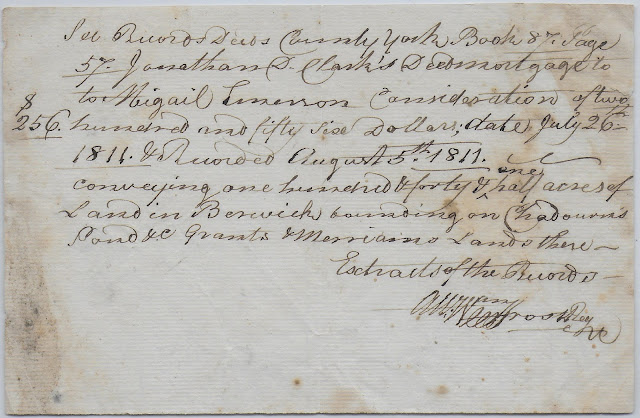 See Records Deeds County York Book 87. Page
57. Jonathan D. Clark's Deed mortgage to
to Abigail Emerson Consideration of two
$
256. hundred and fifty Six Dollars; date July 26th
1811. & Recorded August 5th. 1811.
one
conveying one hundred & forty & half acres of
Land in Berwick bounding on Chadourn's
Pond &c Grants & Lands there
Extracts of the Records
Frost Reg